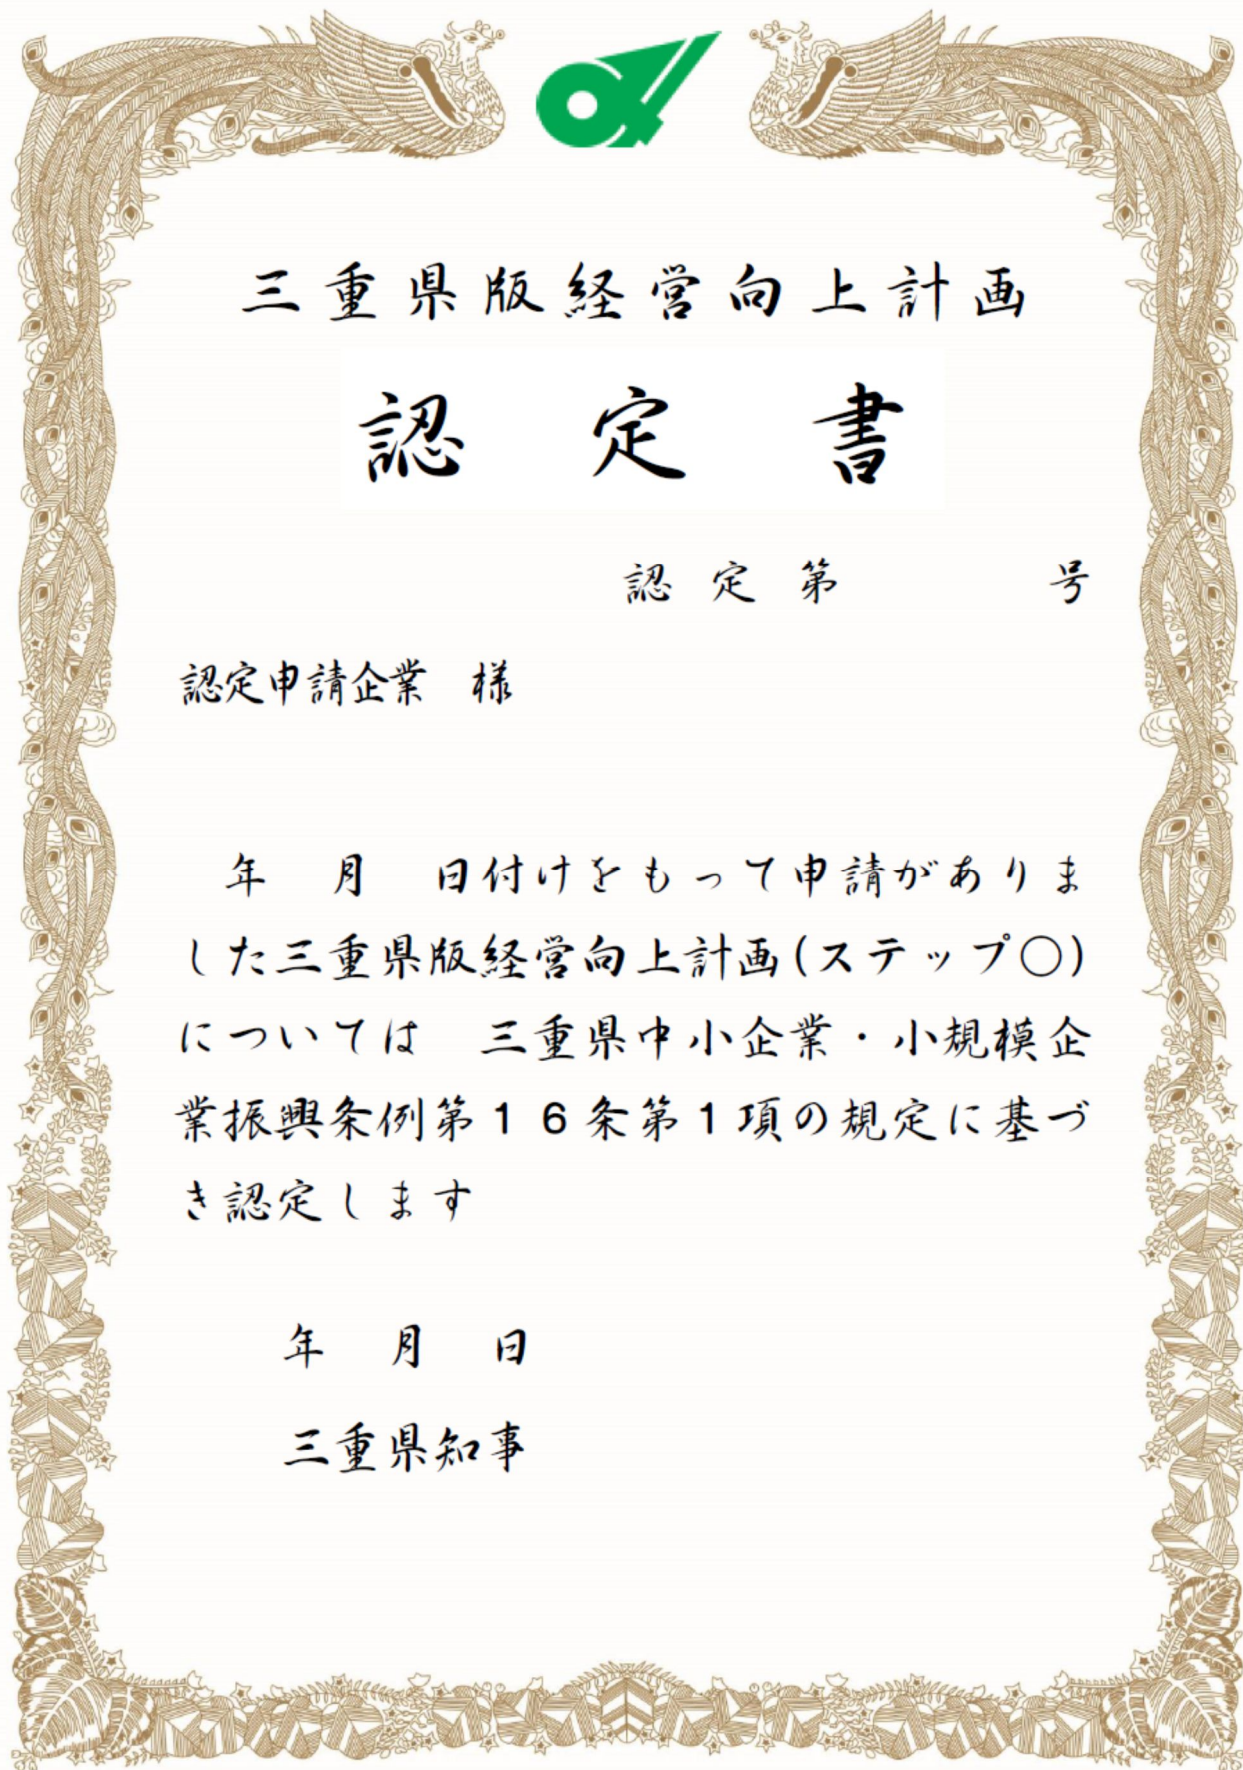 三重県版経営向上計画
認　定　書
認　定　第　　　　　号
認定申請企業　様
　年　月　日付けをもって申請がありま
した三重県版経営向上計画(ステップ○)
については　三重県中小企業・小規模企
業振興条例第１６条第１項の規定に基づ
き認定します
年　月　日
三重県知事